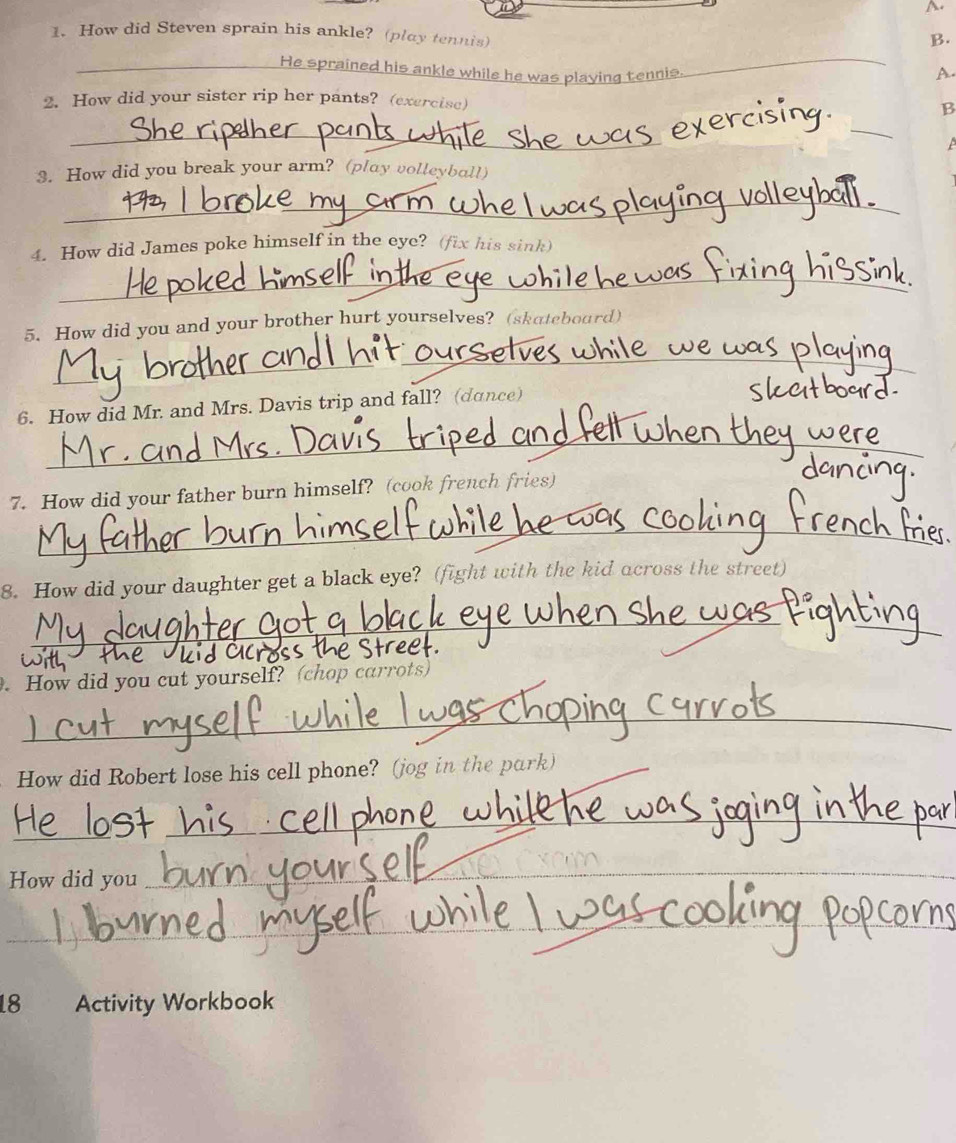 A.
1. How did Steven sprain his ankle? (play tennis)
B.
He sprained his ankle while he was playing tennis.
A.
2. How did your sister rip her pants? (exercise)
B
She ripedher pants while she was exercising.
3. How did you break your arm? (play volleyball)
I broke my arm whe I was playing volleyball.
4. How did James poke himself in the eye? (fix his sink)
He poked himself in the eye while he was fixing his sink.
5. How did you and your brother hurt yourselves? (skateboard)
My brother and I hit ourselves while we was playing
skeatboard.
6. How did Mr. and Mrs. Davis trip and fall? (dance)
Mr. and Mrs. Davis triped and fell when they were
dancing.
7. How did your father burn himself? (cook french fries)
My father burn himself while he was cooking french fries.
8. How did your daughter get a black eye? (fight with the kid across the street)
My daughter got a black eye when she was fighting
with the kid across the street.
. How did you cut yourself? (chop carrots)
I cut myself while I was choping carrots
How did Robert lose his cell phone? (jog in the park)
He lost his cell phone while he was joging in the par
How did you burn yourself
I burned myself while I was cooking popcorns
18 Activity Workbook